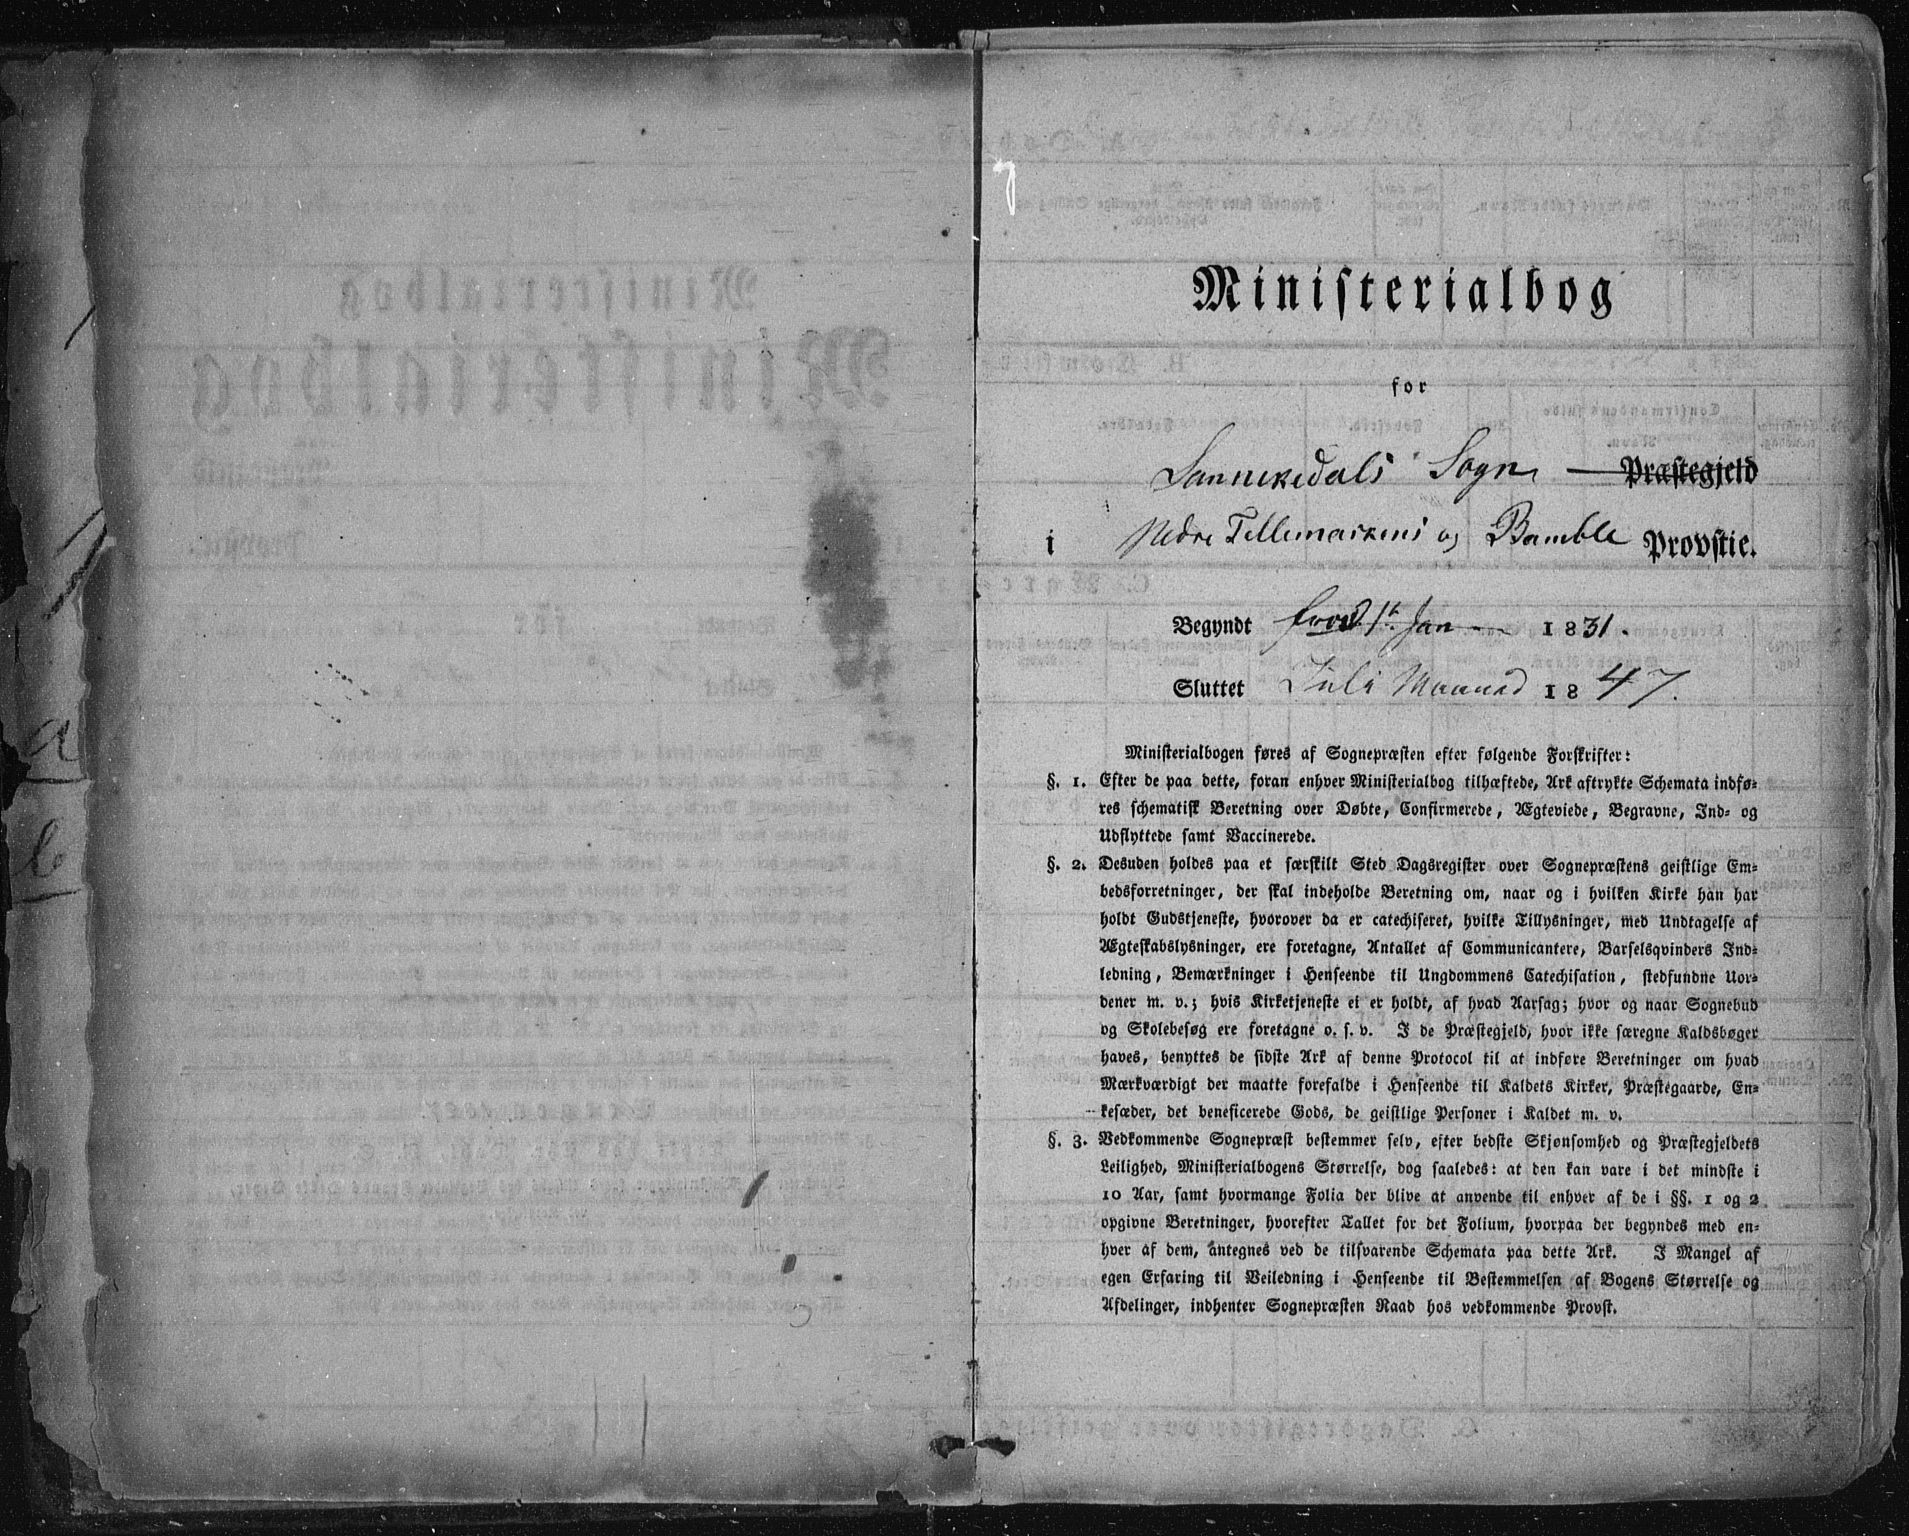 Ministerialbog
for
Sannikedals Sogn Præstegjeld
i Nedre Tellemarkens og Bamble Provstie.
Begyndt 1t Jan 1831.
Sluttet Juli Maaned 1847.
Ministerialbogen føres af Sognepræsten efter følgende Forskrifter:
§. 1. Efter de paa dette, foran enhver Ministerialbog tilhæftede, Ark aftrykte Schemata indfø-
res schematisk Beretning over Døbte, Confirmerede, Ægteviede, Begravne, Ind- og
Udflyttede samt Vaccinerede.
§. 2. Desuden holdes paa et særskilt Sted Dagsregister over Sognepræstens geistlige Em-
bedsforretninger, der skal indeholde Beretning om, naar og i hvilken Kirke han har
holdt Gudstjeneste, hvorover da er catechiseret, hvilke Tillysninger, med Undtagelse af
Ægteskabslysninger, ere foretagne, Antallet af Communicantere, Barselqvinders Ind-
ledning, Bemærkninger i Henseende til Ungdommens Catechisation, stedfundne Uor-
dener m. v.; hvis Kirketjeneste ei er holdt, af hvad Aarsag; hvor og naar Sognebud
og Skolebesøg ere foretagne o. s. v. I de Præstegjeld, hvor ikke særegne Kaldsbøger
haves, benyttes de sidste Ark af denne Protocol til at indføre Beretninger om hvad
Mærkværdigt der maatte forefalde i Henseende til Kaldets Kirker, Præstegaarde, En-
kesæder, det beneficerede Gods, de geistlige Personer i Kaldet m. v.
§. 3. Vedkommende Sognepræst bestemmer selv, efter bedste Skjønsomhed og Præstegjeldets
Leilighed, Ministerialbogens Størrelse, dog saaledes: at den kan vare i det mindste i
10 Aar, samt hvormange Folia der blive at anvende til enhver af de i §§. 1 og 2
opgivne Beretninger, hvorefter Tallet for det Folium, hvorpaa der begyndes med en-
hver af dem, antegnes ved de tilsvarende Schemata paa dette Ark. I Mangel af
egen Erfaring til Veiledning i Henseende til Bestemmelsen af Bogens Størrelse og
Afdelinger, indhenter Sognepræsten Raad hos vedkommende Provst.